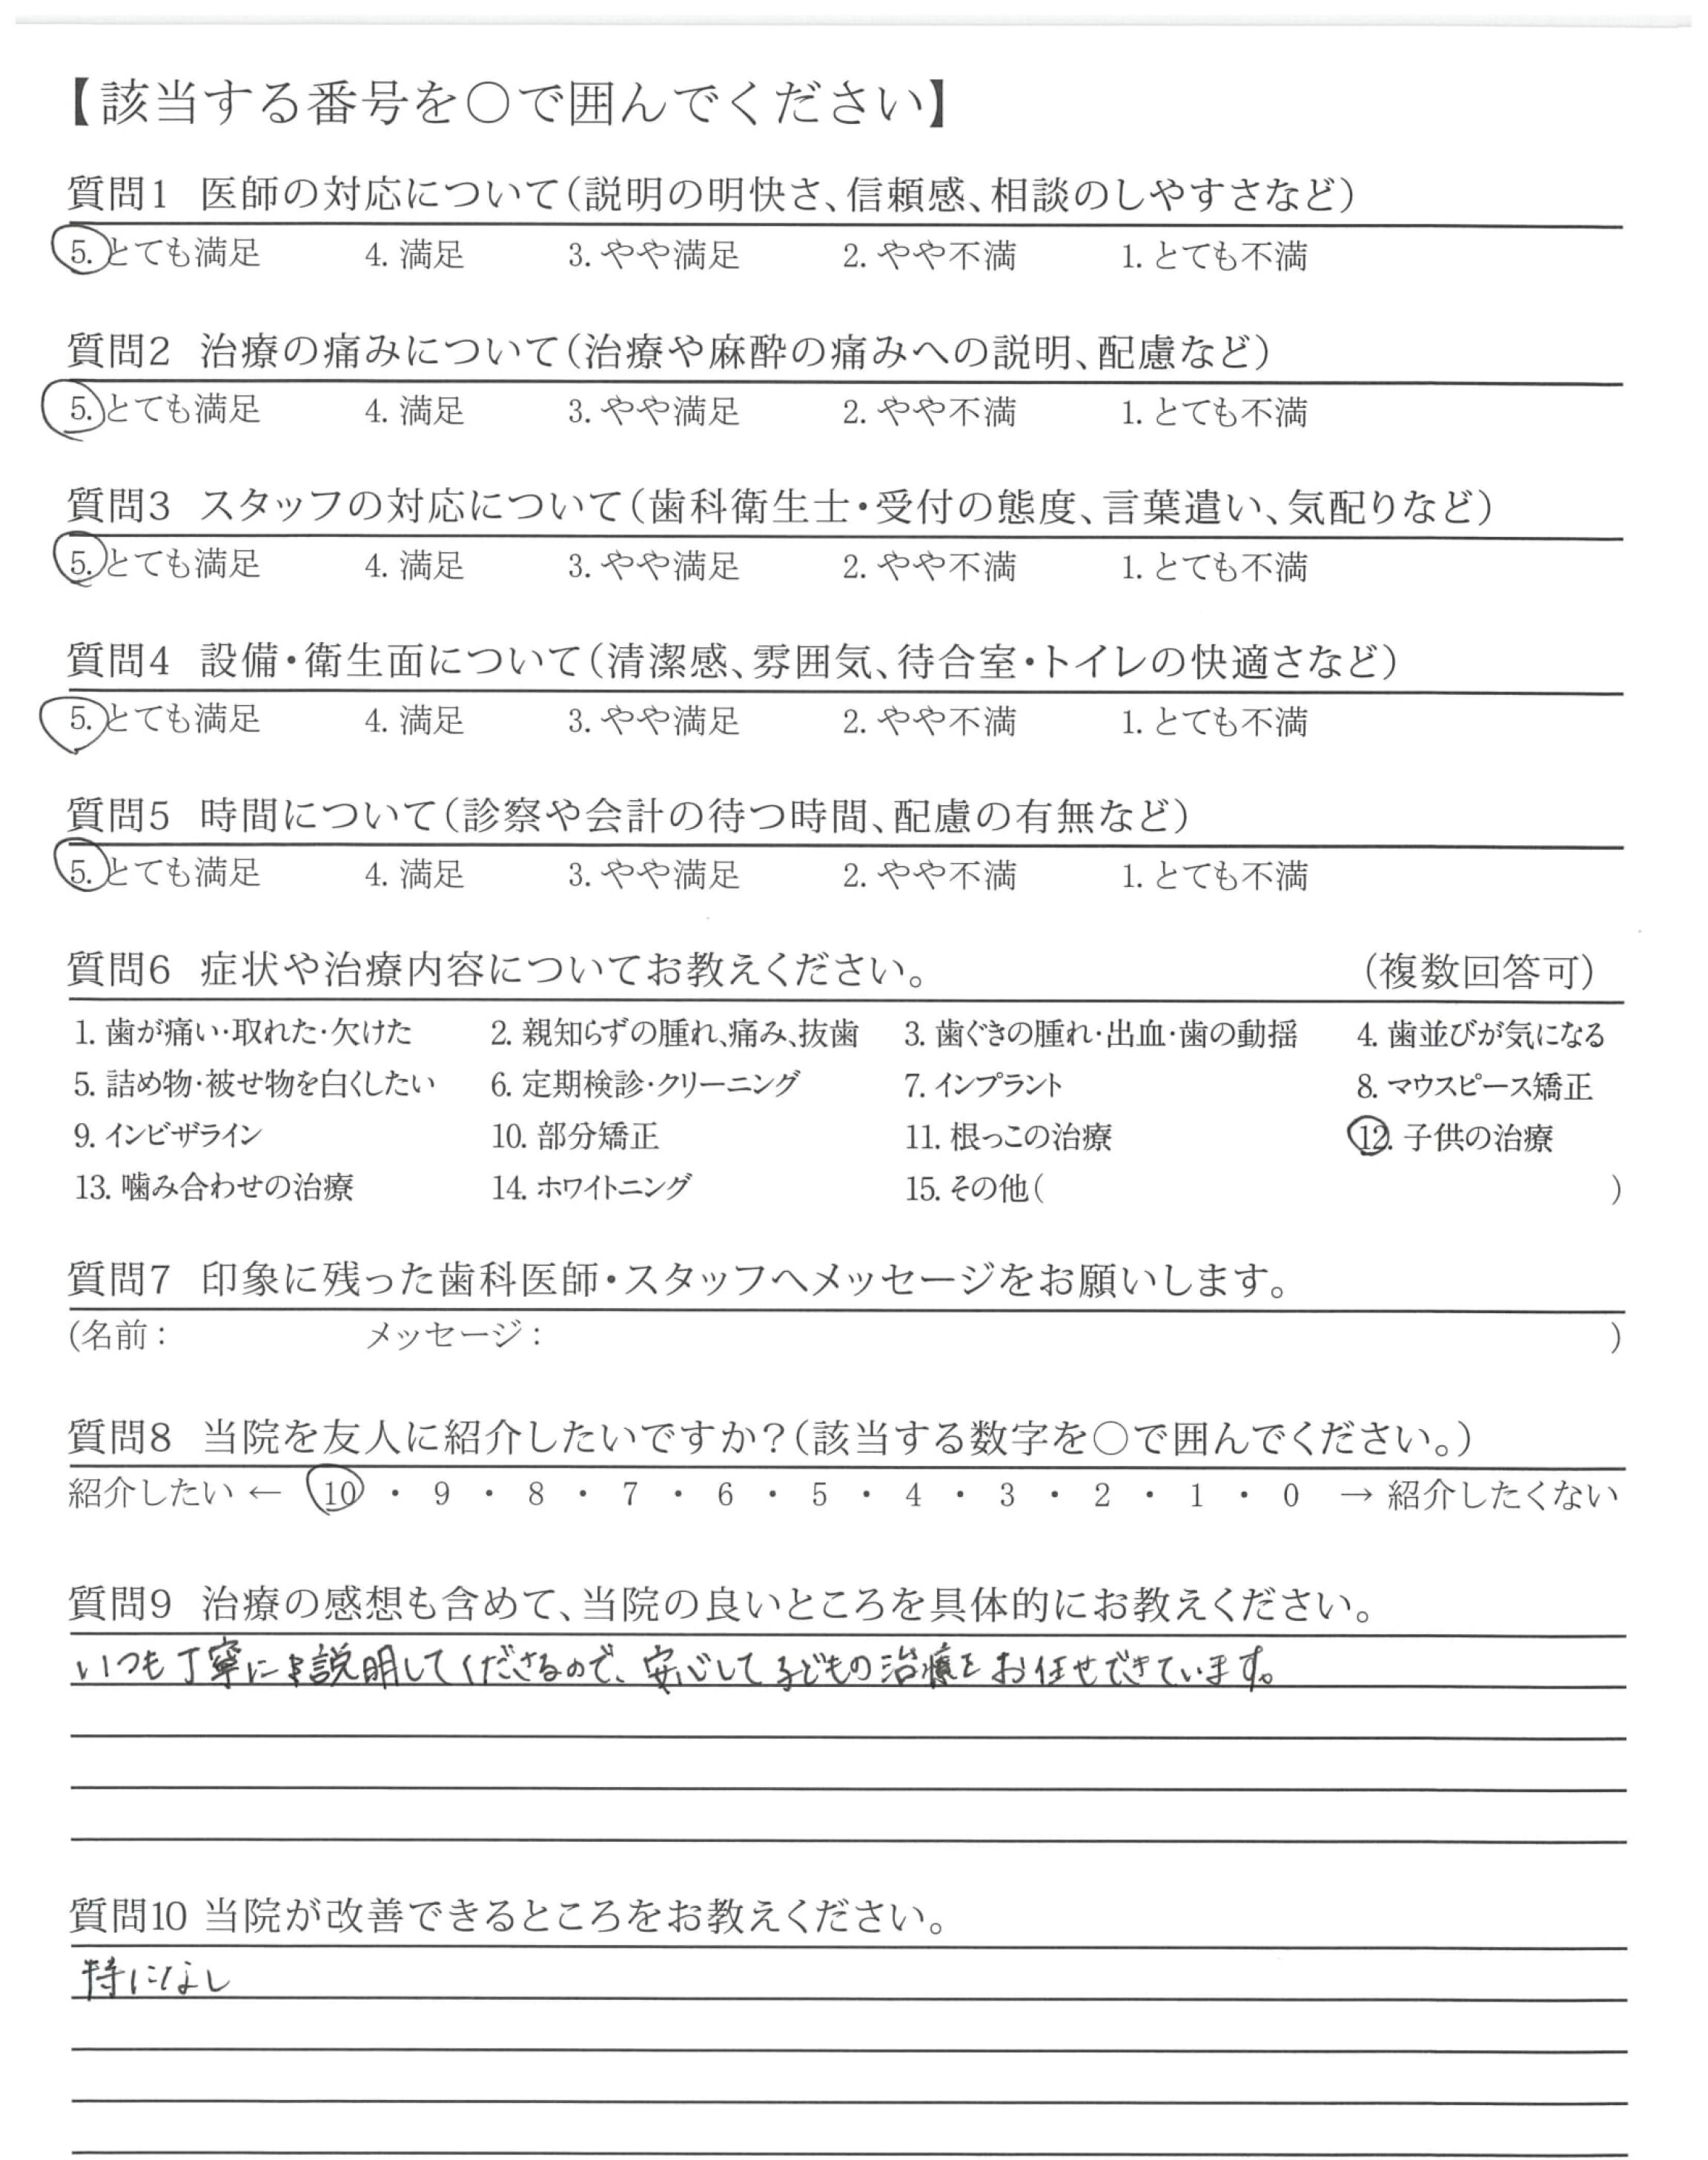 【該当する番号を○で囲んでください】
質問1 医師の対応について(説明の明快さ、信頼感、相談のしやすさなど)
5. とても満足 4. 満足 3. やや満足 2. やや不満 1. とても不満
質問2 治療の痛みについて(治療や麻酔の痛みへの説明、配慮など)
5. とても満足 4. 満足 3. やや満足 2. やや不満 1. とても不満
質問3 スタッフの対応について(歯科衛生士・受付の態度、言葉遣い、気配りなど)
5. とても満足 4. 満足 3. やや満足 2. やや不満 1. とても不満
質問4 設備・衛生面について(清潔感、雰囲気、待合室・トイレの快適さなど)
5. とても満足 4. 満足 3. やや満足 2. やや不満 1. とても不満
質問5 時間について(診察や会計の待つ時間、配慮の有無など)
5. とても満足 4. 満足 3. やや満足 2. やや不満 1. とても不満
質問6 症状や治療内容についてお教えください。 (複数回答可)
1. 歯が痛い・取れた・欠けた 2. 親知らずの腫れ、痛み、抜歯 3. 歯ぐきの腫れ・出血・歯の動揺 4. 歯並びが気になる
5. 詰め物・被せ物を白くしたい 6. 定期検診・クリーニング 7. インプラント 8. マウスピース矯正
9. インビザライン 10. 部分矯正 11. 根っこの治療 12. 子供の治療
13. 噛み合わせの治療 14. ホワイトニング 15. その他( )
質問7 印象に残った歯科医師・スタッフへメッセージをお願いします。
(名前: メッセージ: )
質問8 当院を友人に紹介したいですか?(該当する数字を○で囲んでください。)
紹介したい ← 10 ・ 9 ・ 8 ・ 7 ・ 6 ・ 5 ・ 4 ・ 3 ・ 2 ・ 1 ・ 0 → 紹介したくない
質問9 治療の感想も含めて、当院の良いところを具体的にお教えください。
いつも丁寧に説明してくださるので、安心して子どもの治療をお任せできています。
質問10 当院が改善できるところをお教えください。
特になし